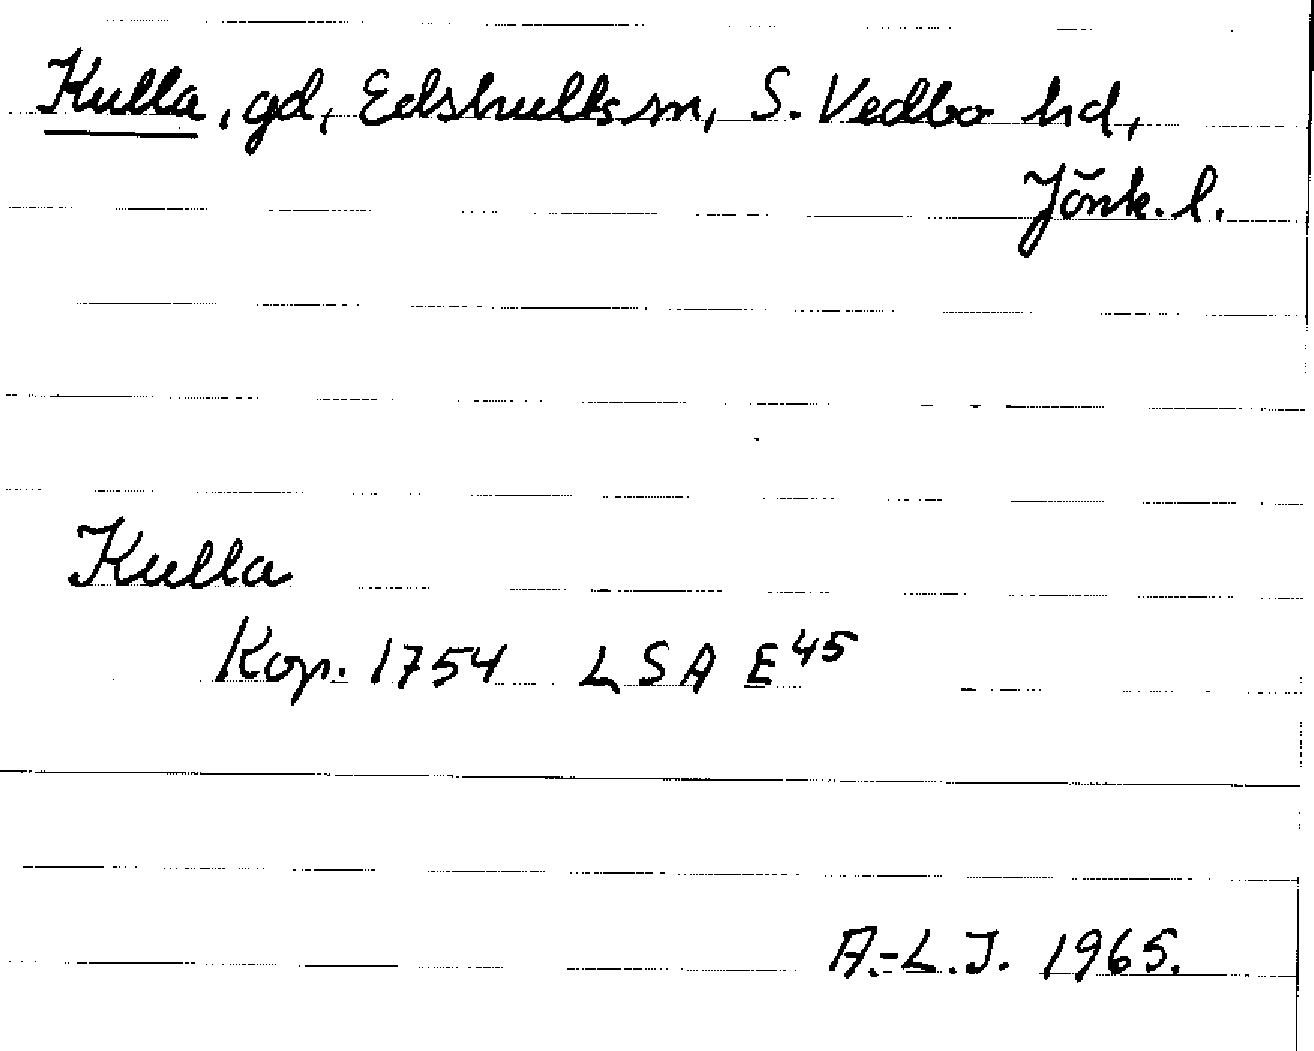 Kulla, gd, Edshults sn, S. Vedbo hd,
Jönk. l.
Kulla
Kop. 1754 LSA E45
A.-L.J. 1965.